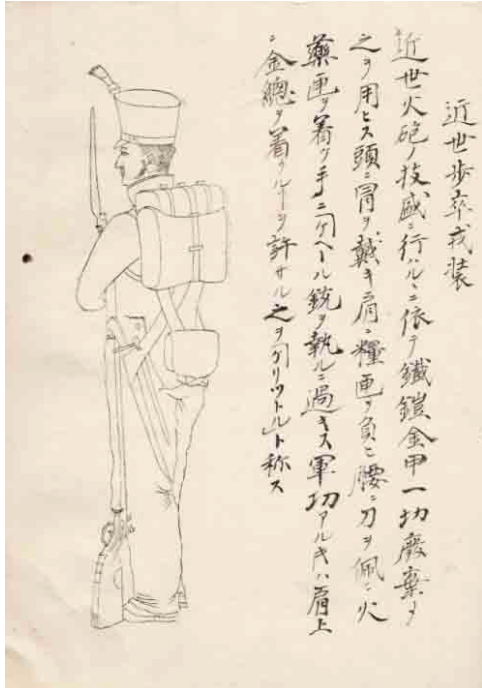 近世歩卒戎装
近世火砲ノ技盛ニ行ハルヽニ依テ鐵鎧金甲一切廢棄メ
之ヲ用ヒス頭ニ冐ヲ戴キ肩ニ糧匣ヲ負ヒ腰ニ刀ヲ佩ヒ火
藥匣ヲ着ケ手ニゲヘール銃ヲ執ルニ過キス軍功アルキハ肩上
ニ金總ヲ着クルヿヲ許サル之ヲ リツトルト称ス